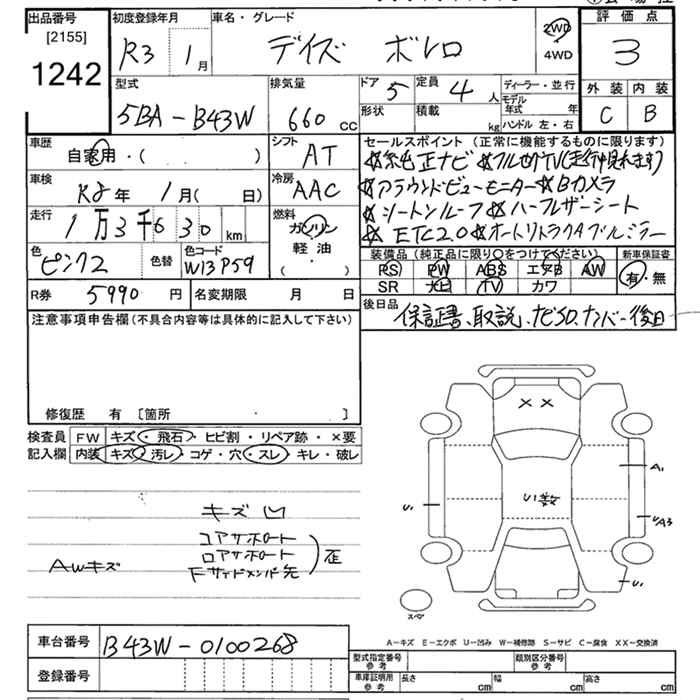 出品番号 初度登録年月 車名・グレード 評価点
[2155]
1242
R3 1月 デイズ ボレロ 2WD 4WD 3
型式 排気量 ドア 5 定員 4人 ディーラー・並行 外装 内装
5BA-B43W 660cc 形状 積載 kg モデル年式 年 C B
ハンドル 左・右
車歴 自家用・( ) シフト AT
セールスポイント(正常に機能するものに限ります)
☆純正ナビ☆フルセグTV(走行中見れます)
車検 R8年 1月( 日) 冷房 AAC
☆アラウンドビューモニター☆Bカメラ
走行 1万3千630km 燃料 ガソリン 軽油 ( ・ )
☆シートンルーフ☆ハーフレザーシート
☆ETC2.0☆オートリトラクタブルミラー
色 ピンク2 色替 色コード W13P59
装備品(純正品に限り○をつけてください) 新車保証書
PS PW ABS エアB AW 有・無
SR ナビ TV カワ
R券 5990円 名変期限 月 日
後日品 保証書、取説、ナビSD、ナンバー後日
注意事項申告欄(不具合内容等は具体的に記入して下さい)
修復歴 有 [箇所 ]
検査員 FW キズ・飛石・ヒビ割・リペア跡・×要
記入欄 内装 キズ・汚レ・コゲ・穴・スレ・キレ・破レ
キズ凹
コアサポート
ロアサポート
Fサイドメンバ先
歪
AWキズ
××
U1数
A1
U1
UA3
U1
スペア
A-キズ E-エクボ U-凹み W-補修跡 S-サビ C-腐食 XX-交換済
車台番号 B43W-0100268
登録番号
型式指定番号 参考 類別区分番号 参考
車庫証明用 参考 長さ cm 幅 cm 高さ cm